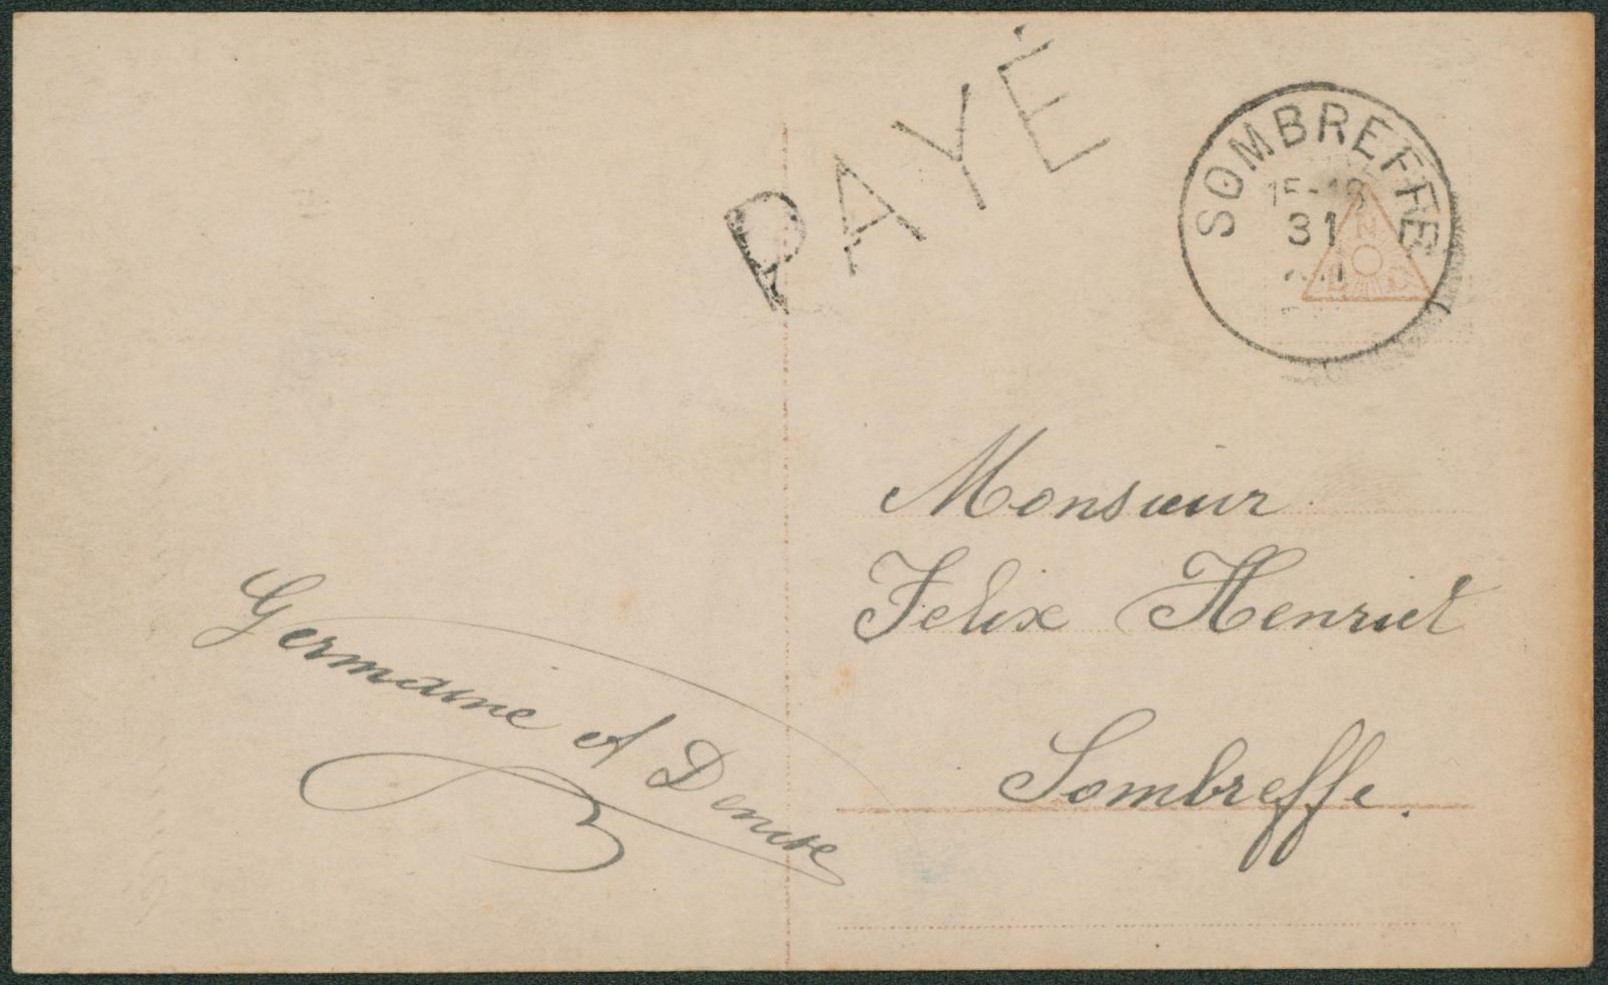 PAYÉ
SOMBREFFE
31
N
Monsieur
Felix Henriet
Sombreffe.
Germaine et Denise